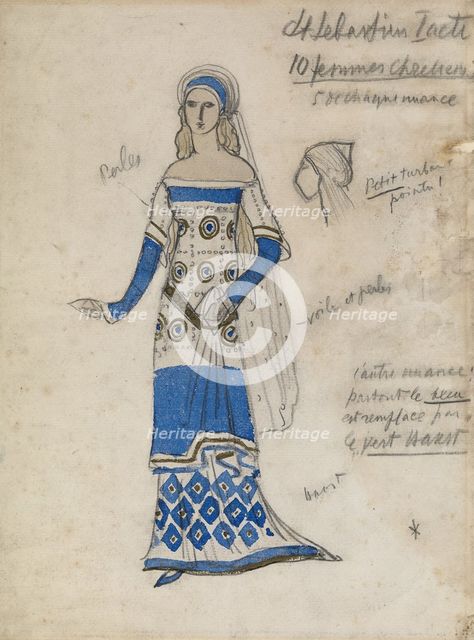 St Sebastien 1 acte
10 femmes chretiennes
5 de chaque nuance
Perles
Petit turban
pointu!
voile et perles
l'autre nuance
partout le bleu
est remplacé par
le vert
Heritage
Heritage
Heritage
Heritage
Heritage
Heritage
Heritage
Heritage
Heritage